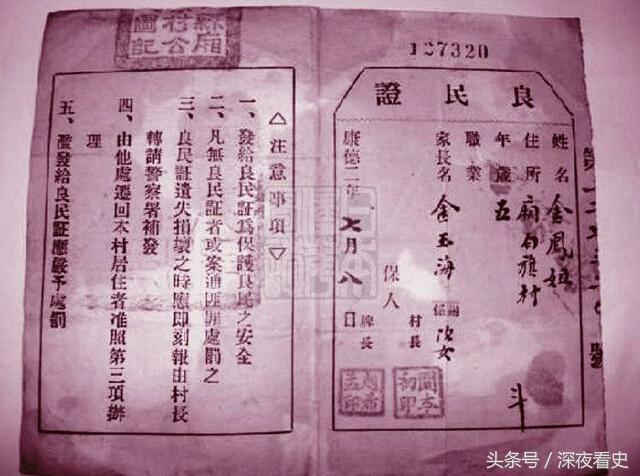 127320
良民證
姓名 金鳳
住所 廂白旗村
年歲 五
職業
家長名 金玉海
關係 次女
康德二年 七月八日
保人
村長
牌長
△注意事項▽
一、發給良民証為保護良民之安全
二、凡無良民証者或案通匪罪處罰之
三、良民証遺失損壞之時應即刻報由村長
轉請警察署補發
四、由他處遷回本村居住者准照第三項辦
理
五、濫發給良民証應嚴予處罰
縣廂
村公
圖記
头条号 / 深夜看史